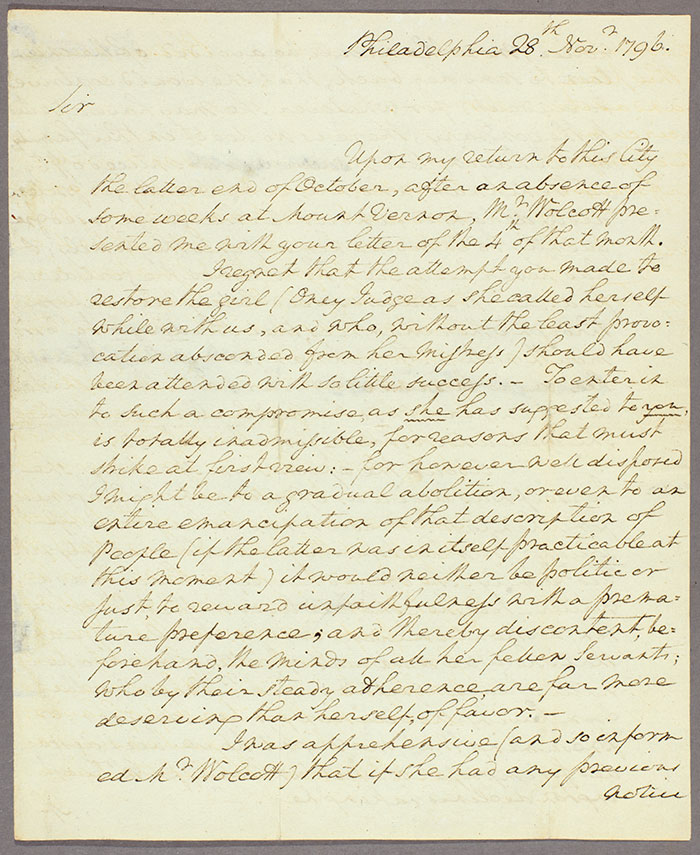 Philadelphia 28th Novr. 1796.
Sir
Upon my return to this City
the latter end of October, after an absence of
some weeks at Mount Vernon, Mr. Wolcott pre-
sented me with your letter of the 4th of that month.
I regret that the attempt you made to
restore the girl (Oney Judge as she called herself
while with us, and who, without the least provo-
cation absconded from her Mistress) should have
been attended with so little success. — To enter in
to such a compromise as she has suggested to you,
is totally inadmissible, for reasons that must
strike at first view: — for however well disposed
I might be to a gradual abolition, or even to an
entire emancipation of that description of
People (if the latter was in itself practicable at
this moment) it would neither be politic or
just, to reward unfaithfulness with a prema-
ture preference; and thereby discontent, be-
forehand, the minds of all her fellow Servants;
who by their steady adherence, are far more
deserving than herself, of favor. —
I was apprehensive (and so inform
ed Mr. Wolcott) that if she had any previous
notice